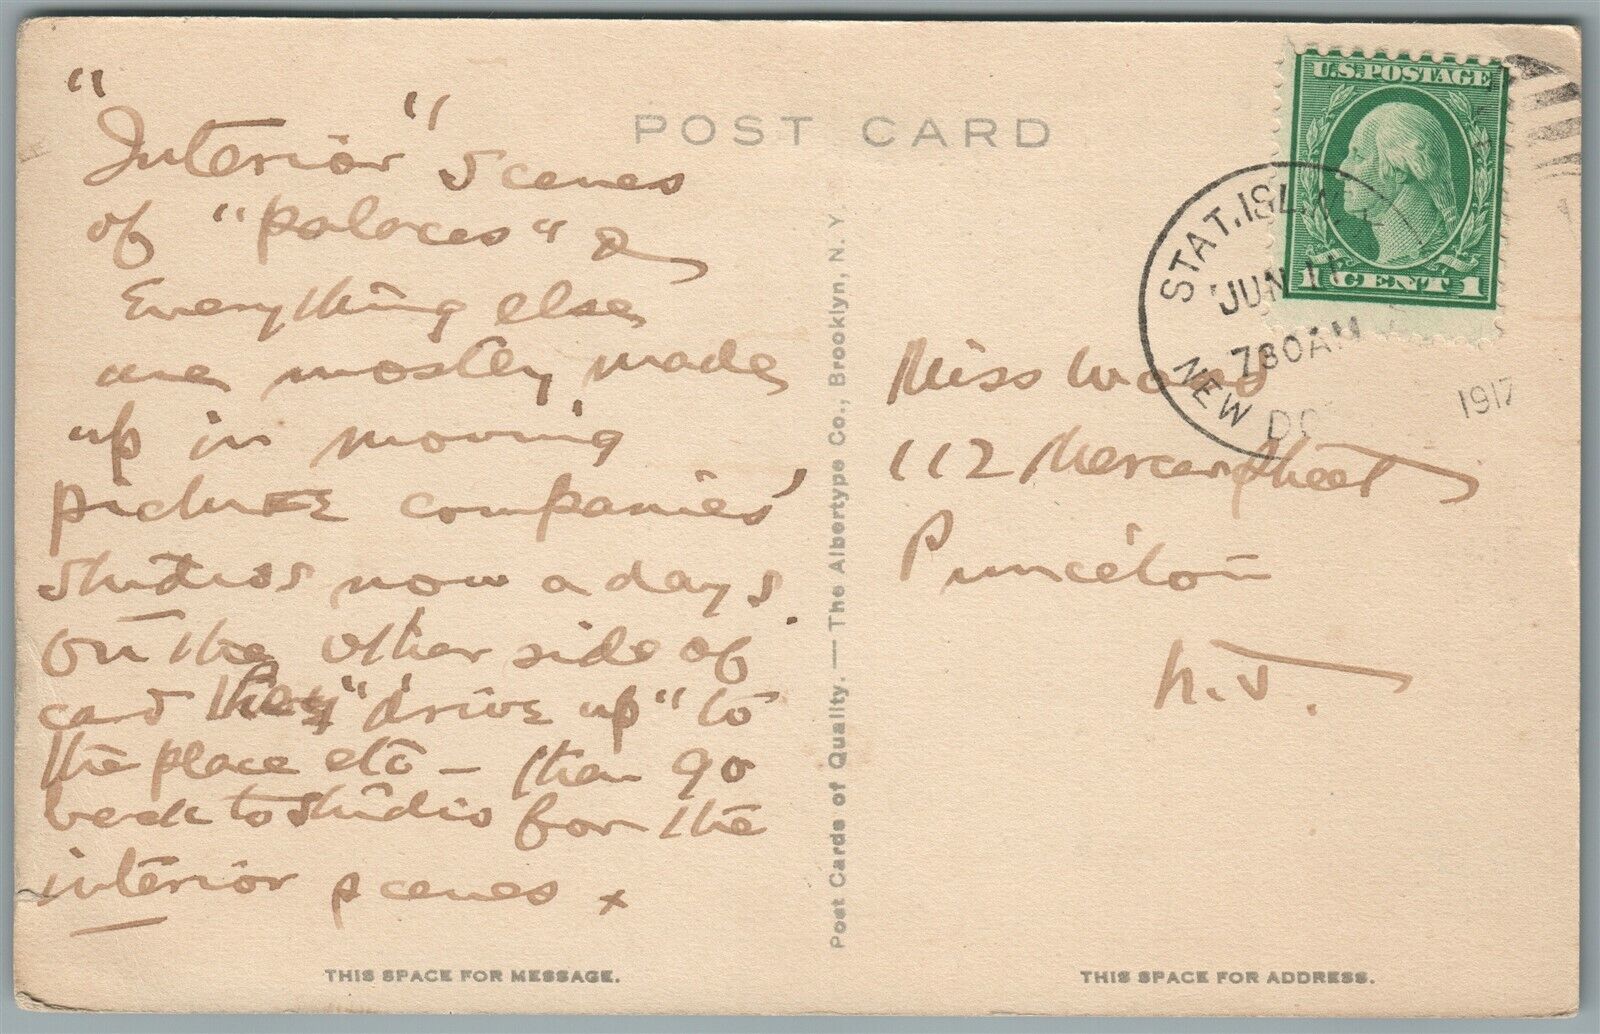 "Interior" scenes
of "palaces" &
Everything else
are mostly made
up in moving
picture companies'
studios now a days.
On the other side of
card they "drive up" to
the place etc - then go
back to studio for the
interior scenes x
THIS SPACE FOR MESSAGE.
POST CARD
Post Cards of Quality. — The Albertype Co., Brooklyn, N. Y.
U.S. POSTAGE
1 CENT 1
STAT. ISL. N.Y.
JUN 11
730AM
1917
NEW
Miss
112 Mercer Street
Princeton
N.J.
THIS SPACE FOR ADDRESS.